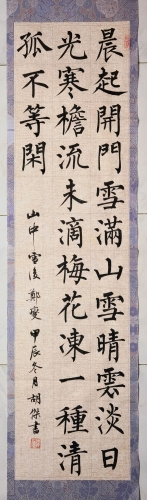 晨起開門雪滿山雪晴雲淡日
光寒檐流未滴梅花凍一種清
孤不等閑
山中雪後 鄭燮 甲辰冬月 胡傑書